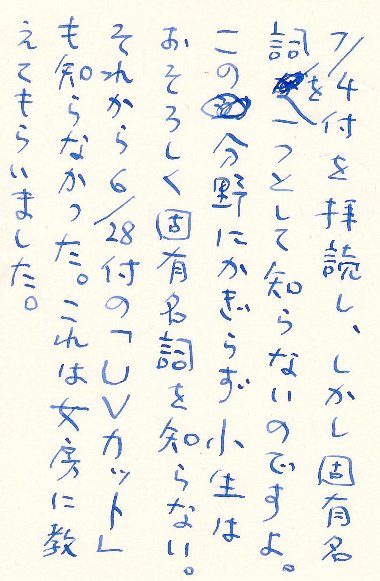 7/4付を拝読し、しかし固有名
詞を一つとして知らないのですよ。
この分野にかぎらず小生は
おそろしく固有名詞を知らない。
それから6/28付の「UVカット」
も知らなかった。これは女房に教
えてもらいました。